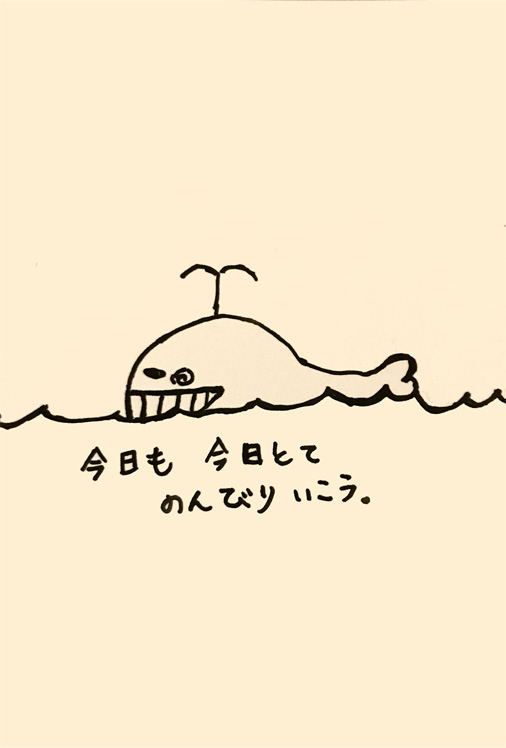 今日も 今日とて
のんびり いこう。